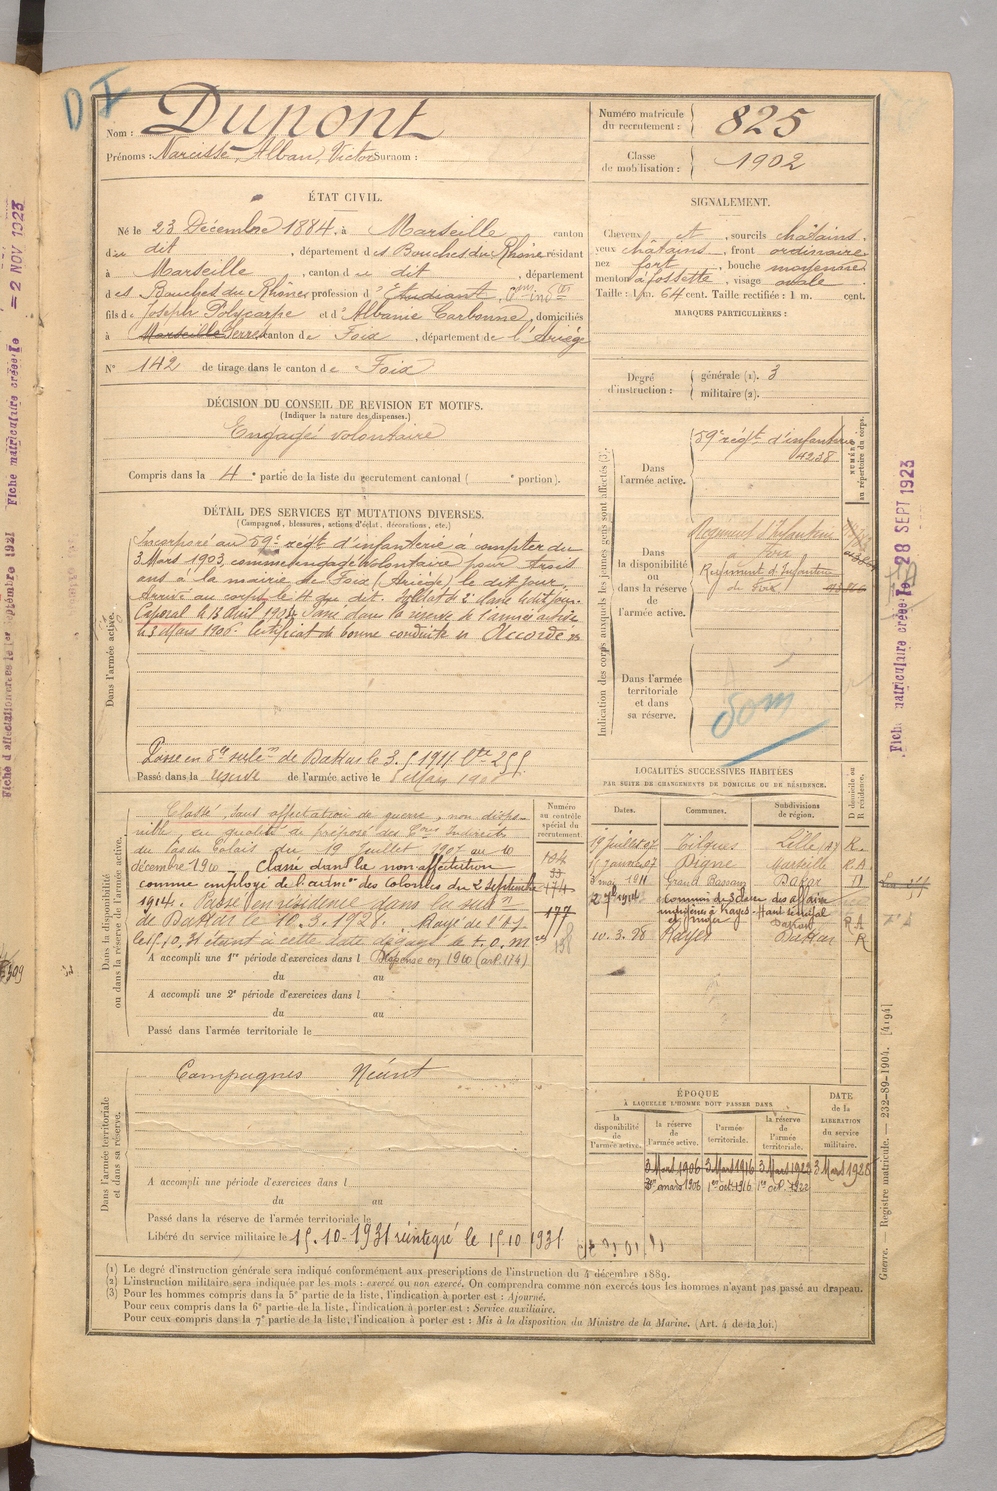 DI
Nom : Dupont
Prénoms : Narcisse, Alban, Victor Surnom :
Numéro matricule du recrutement : 825
Classe de mobilisation : 1902
ÉTAT CIVIL.
Né le 23 Décembre 1884, à Marseille canton
du dit, département des Bouches du Rhône résidant
à Marseille, canton du dit, département
des Bouches du Rhône profession d'Etudiant,
fils de Joseph Polycarpe et d'Albanie Carbonne, domiciliés
à Marseille Serres canton de Foix, département de l'Ariège
N° 142 de tirage dans le canton de Foix
SIGNALEMENT.
Cheveux et, sourcils châtains.
yeux châtains, front ordinaire
nez fort, bouche moyenne
menton à fossette, visage ovale
Taille : 1 m. 64 cent. Taille rectifiée : 1 m. cent.
MARQUES PARTICULIÈRES :
Degré d'instruction : générale (1). 3
militaire (2).
DÉCISION DU CONSEIL DE REVISION ET MOTIFS.
(Indiquer la nature des dispenses.)
Engagé volontaire
Compris dans la 4e partie de la liste du recrutement cantonal ( e portion).
DÉTAIL DES SERVICES ET MUTATIONS DIVERSES.
(Campagnes, blessures, actions d'éclat, décorations, etc.)
Dans l'armée active.
Incorporé au 59e régt d'infanterie à compter du
3 Mars 1903, comme engagé volontaire pour trois
ans à la mairie de Foix (Ariège) le dit jour.
Arrivé au corps le 4 du dit. Soldat de 2e classe le dit jour.
Caporal le 13 Avril 1904. Passé dans la réserve de l'armée active
le 3 Mars 1906. Certificat de bonne conduite "Accordé"
Passé en de Dakar le 3.5.1911 255
Passé dans la réserve de l'armée active le Mars 1906
Indication des corps auxquels les jeunes gens sont affectés (3).
NUMÉRO au répertoire du corps.
Dans l'armée active.
59e régt d'infanterie
4238
Dans la disponibilité ou dans la réserve de l'armée active.
Régiment d'Infanterie
à Foix
Régiment d'Infanterie
de Foix
Dans l'armée territoriale et dans sa réserve.
Som
Dans la disponibilité ou dans la réserve de l'armée active.
Numéro au contrôle spécial du recrutement.
Classé, sans affectation de guerre, non dispo-
nible, en qualité de préposé des Cons Indirectes
du Pas de Calais du 19 Juillet 1907 au 10
décembre 1910 - Classé dans la non affectation
comme employé de l'admon des Colonies du 2 septembre
1914. Passé en résidence dans la subon
de Dakar le 10.3.1928. Rayé de l'A.S.
le 15.10.31 étant à cette date dégagé de t.o.m
104
33
174
177
158
A accompli une 1re période d'exercices dans l Dispensé en 1910 (art. 174)
du au
A accompli une 2e période d'exercices dans l
du au
Passé dans l'armée territoriale le
LOCALITÉS SUCCESSIVES HABITÉES
PAR SUITE DE CHANGEMENTS DE DOMICILE OU DE RÉSIDENCE.
Dates. Communes. Subdivisions de région. D domicile ou R résidence.
19 juillet 07 Tilques Lille R.
Digne Marseille R.A
3 mai 1911 Grand Bassam Dakar D
2 7bre 1914 commis de 3e classe des affaires
indigènes à Kayes - Haut Sénégal
et Niger Dakar R A
10.3.28 Kayes Dakar R
Dans l'armée territoriale et dans sa réserve.
Campagnes Néant
A accompli une période d'exercices dans l
du au
Passé dans la réserve de l'armée territoriale le
Libéré du service militaire le 15.10.1931 réintégré le 15.10.1931
ÉPOQUE
À LAQUELLE L'HOMME DOIT PASSER DANS
la disponibilité de l'armée active. la réserve de l'armée active. l'armée territoriale. la réserve de l'armée territoriale.
DATE de la LIBÉRATION du service militaire.
3 Mars 1906 3 Mars 1916 3 Mars 1922 3 Mars 1928
mars 1906 1er oct. 1916 1er oct. 1922
(1) Le degré d'instruction générale sera indiqué conformément aux prescriptions de l'instruction du 4 décembre 1889.
(2) L'instruction militaire sera indiquée par les mots : exercé ou non exercé. On comprendra comme non exercés tous les hommes n'ayant pas passé au drapeau.
(3) Pour les hommes compris dans la 5e partie de la liste, l'indication à porter est : Ajourné.
Pour ceux compris dans la 6e partie de la liste, l'indication à porter est : Service auxiliaire.
Pour ceux compris dans la 7e partie de la liste, l'indication à porter est : Mis à la disposition du Ministre de la Marine. (Art. 4 de la loi.)
Guerre. — Registre matricule. — 232-89-1904. [4194]
Fiche matriculaire créée le 28 SEPT 1923
Fiche matriculaire créée le = 2 NOV 1923
Fiche d'affectation créée le 1er septembre 1921